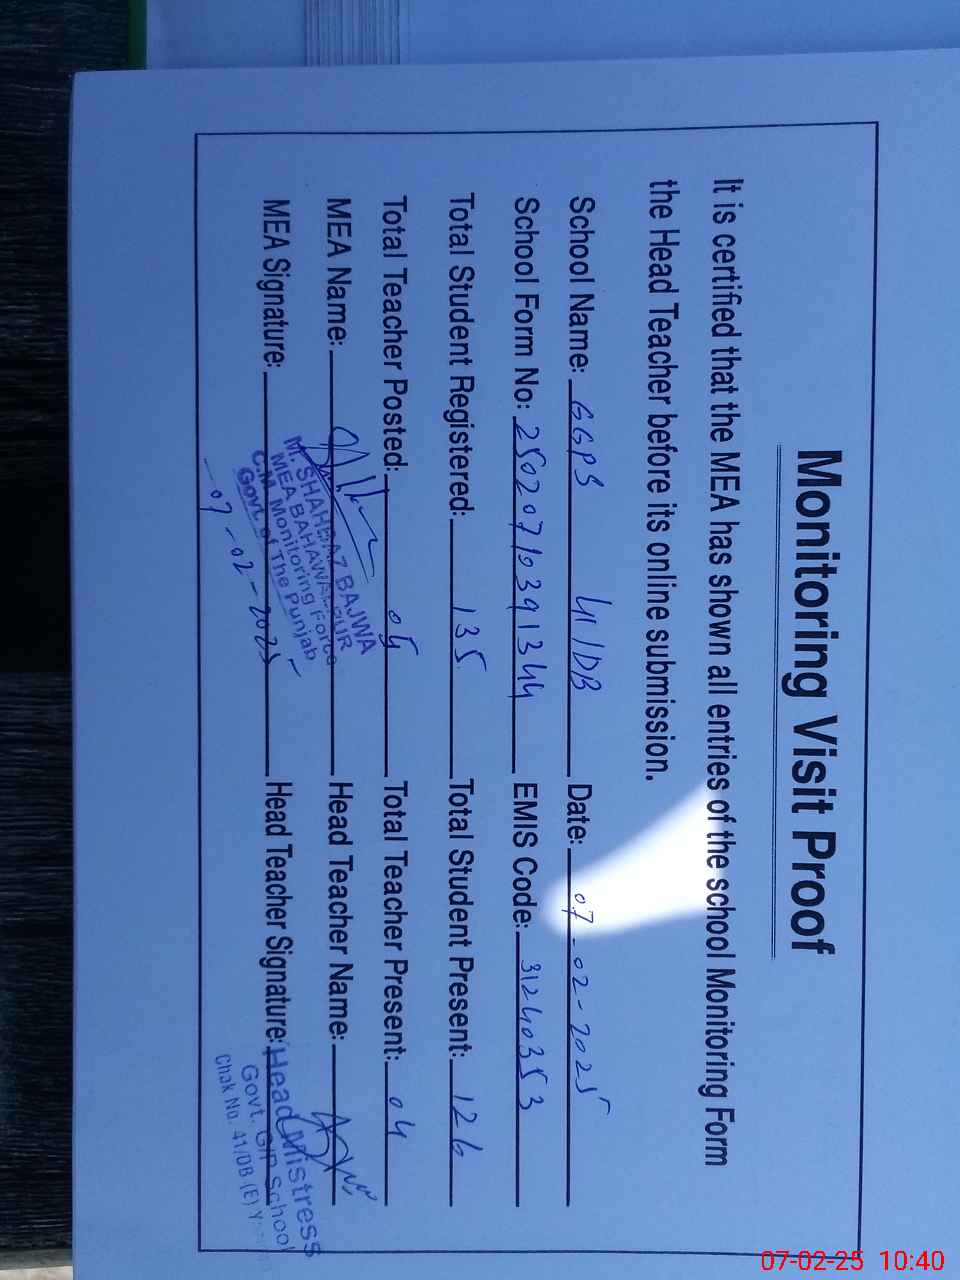 Monitoring Visit Proof
It is certified that the MEA has shown all entries of the school Monitoring Form
the Head Teacher before its online submission.
School Name: GGPS 41/DB Date: 07-02-2025
School Form No: 25020710391344 EMIS Code: 31240353
Total Student Registered: 135 Total Student Present: 126
Total Teacher Posted: 05 Total Teacher Present: 04
MEA Name: Head Teacher Name:
MEA Signature: Head Teacher Signature:
M. SHAHBAZ BAJWA
MEA BAHAWALPUR
C.M Monitoring Force
Govt. of The Punjab
07-02-2025
Head Mistress
Govt. G/P School
Chak No. 41/DB (E)
07-02-25 10:40